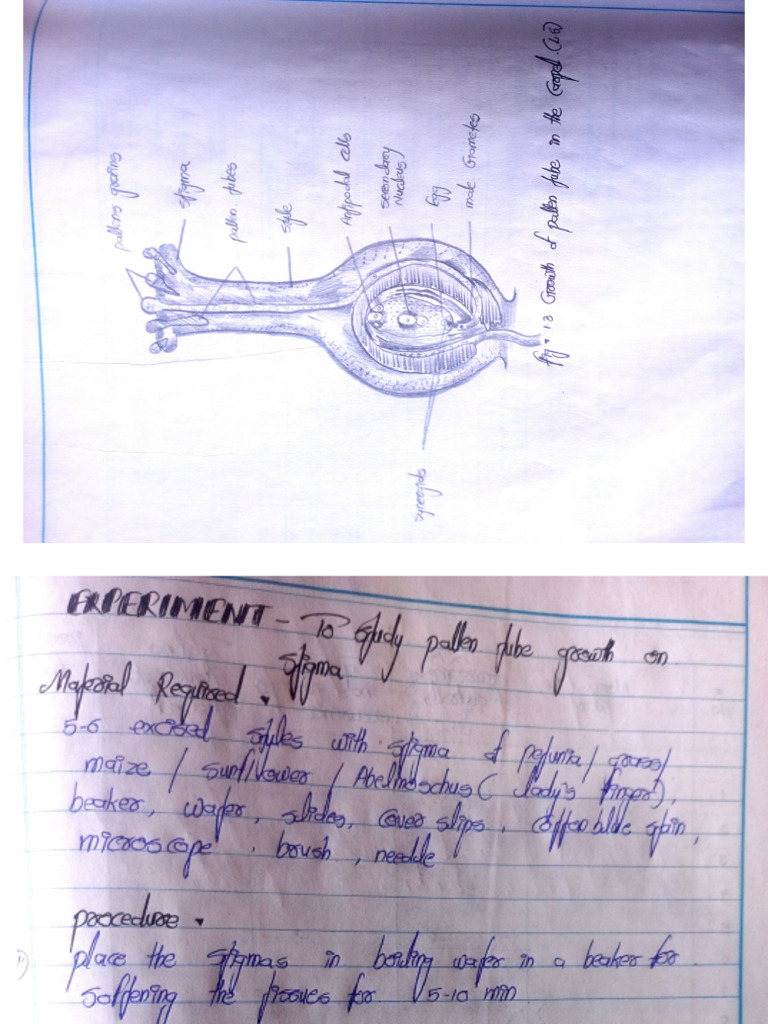 pollens grains
stigma
pollen tubes
style
Antipodal cells
secondary
Nucleus
Egg
male Gametes
synergids
fig. 1.3 Growth of pollen tube in the Carpel. (L.S)
EXPERIMENT - To study pollen tube growth on
stigma
Material Required.
5-6 excised styles with stigma of petunia/ grass/
maize / sunflower / Abelmoschus ( lady's finger),
beaker, water, slides, cover slips, cotton blue stain,
microscope, brush, needle
procedure.
1) place the stigmas in boiling water in a beaker for
softening the tissues for 5-10 min